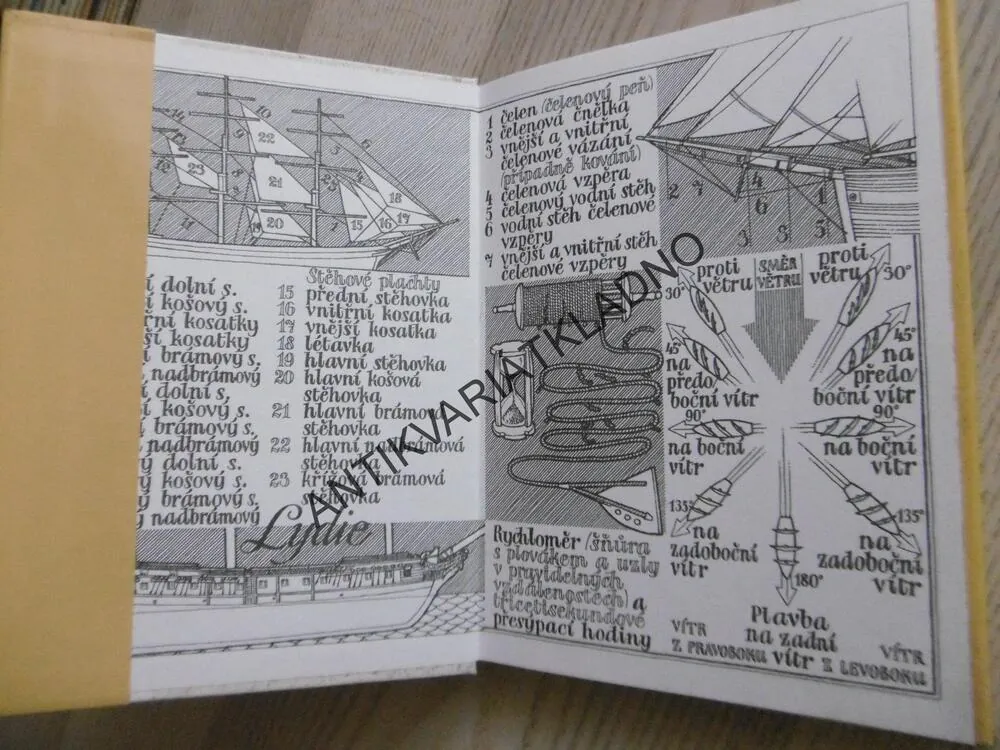 í dolní s.
í košový s.
řní kosatky
ší kosatky
í brámový s.
nadbrámový
í dolní s.
í košový s.
í brámový s.
nadbrámový
ý dolní s.
ý košový s.
ý brámový s.
ý nadbrámový
Stěhové plachty
15 přední stěhovka
16 vnitřní kosatka
17 vnější kosatka
18 létavka
19 hlavní stěhovka
20 hlavní košová
stěhovka
21 hlavní brámová
stěhovka
22 hlavní nadbrámová
stěhovka
23 křížová brámová
stěhovka
Lydie
1 čelen (čelenový peň)
2 čelenová čnělka
3 vnější a vnitřní
čelenové vázání
(případně kování)
4 čelenová vzpěra
5 čelenový vodní stěh
6 vodní stěh čelenové
vzpěry
7 vnější a vnitřní stěh
čelenové vzpěry
Rychloměr (šňůra
s plovákem a uzly
v pravidelných
vzdálenostech) a
třicetisekundové
přesýpací hodiny
proti
větru
SMĚR
VĚTRU
proti
větru
30°
30°
45°
na
předo/
boční vítr
45°
na
předo/
boční vítr
90°
na boční
vítr
90°
na boční
vítr
135°
na
zadoboční
vítr
135°
na
zadoboční
vítr
180°
Plavba
na zadní
vítr
VÍTR
Z PRAVOBOKU
VÍTR
Z LEVOBOKU
ANTIKVARIÁTKLADNO